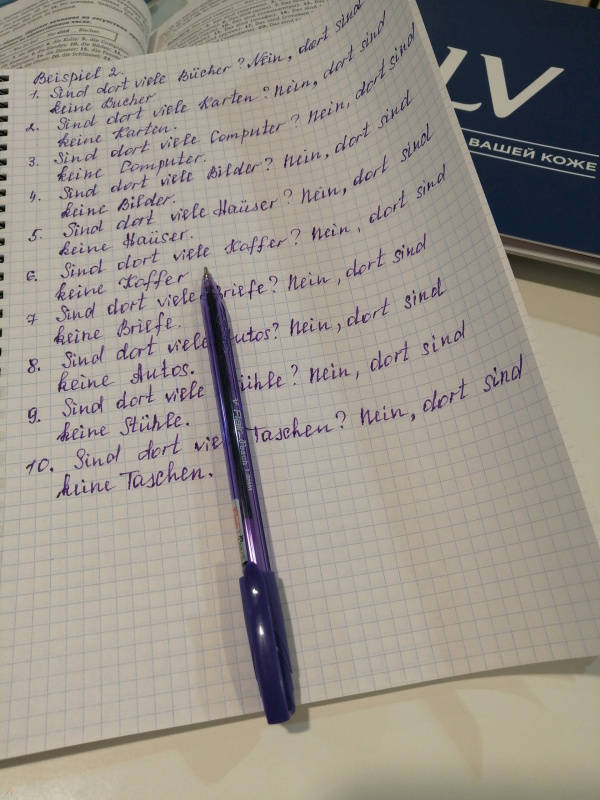 Beispiel 2.
1. Sind dort viele Bücher? Nein, dort sind
keine Bücher
2. Sind dort viele Karten? Nein, dort sind
keine Karten.
3. Sind dort viele Computer? Nein, dort sind
keine Computer.
4. Sind dort viele Bilder? Nein, dort sind
keine Bilder.
5. Sind dort viele Haüser? Nein, dort sind
keine Haüser.
6. Sind dort viele Koffer? Nein, dort sind
keine Koffer
7. Sind dort viele Briefe? Nein, dort sind
keine Briefe.
8. Sind dort viele Autos? Nein, dort sind
keine Autos.
9. Sind dort viele Stühle? Nein, dort sind
keine Stühle.
10. Sind dort viele Taschen? Nein, dort sind
keine Taschen.
LV
ВАШЕЙ КОЖЕ